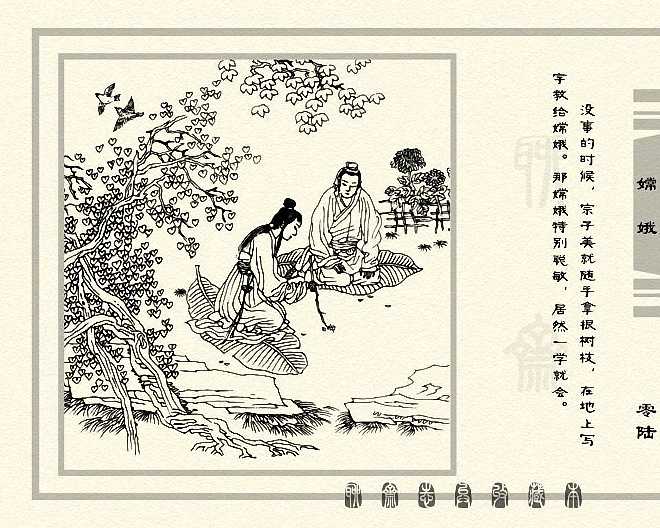 嫦娥
零陆
没事的时候，宗子美就随手拿根树枝，在地上写
字教给嫦娥。那嫦娥特别聪敏，居然一学就会。